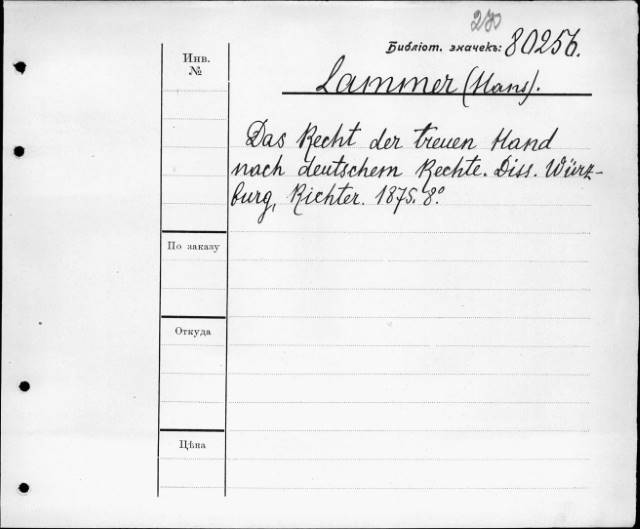 280
Библіот. значекъ: 80256.
Инв.
№
Lammer (Hans).
Das Recht der treuen Hand
nach deutschem Rechte. Diss. Würz-
burg, Richter. 1875. 8º.
По заказу
Откуда
Цѣна